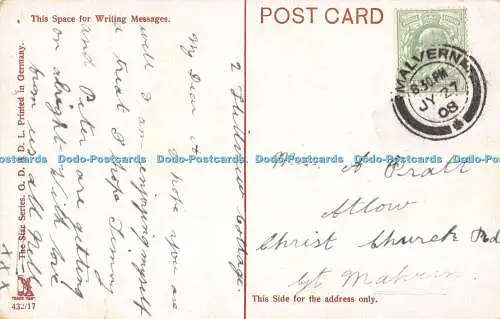 This Space for Writing Messages.
2 Cottage.
My Dear A
I hope you are
well I am enjoying myself
a treat I hope Jimmy
and Peter are getting
on alright with love
from us all Nell
x x x
The Star Series. G. D. & D. L. Printed in Germany.
TRADE MARK
432/17
POST CARD
MALVERN
8.30 PM
JY 27
08
Mrs A Pratt
Atlow
Christ Church Rd
Gt Malvern
This Side for the address only.
Dodo-Postcards Dodo-Postcards Dodo-Postcards Dodo-Postcards Dodo-Postcards Dodo-Postcards